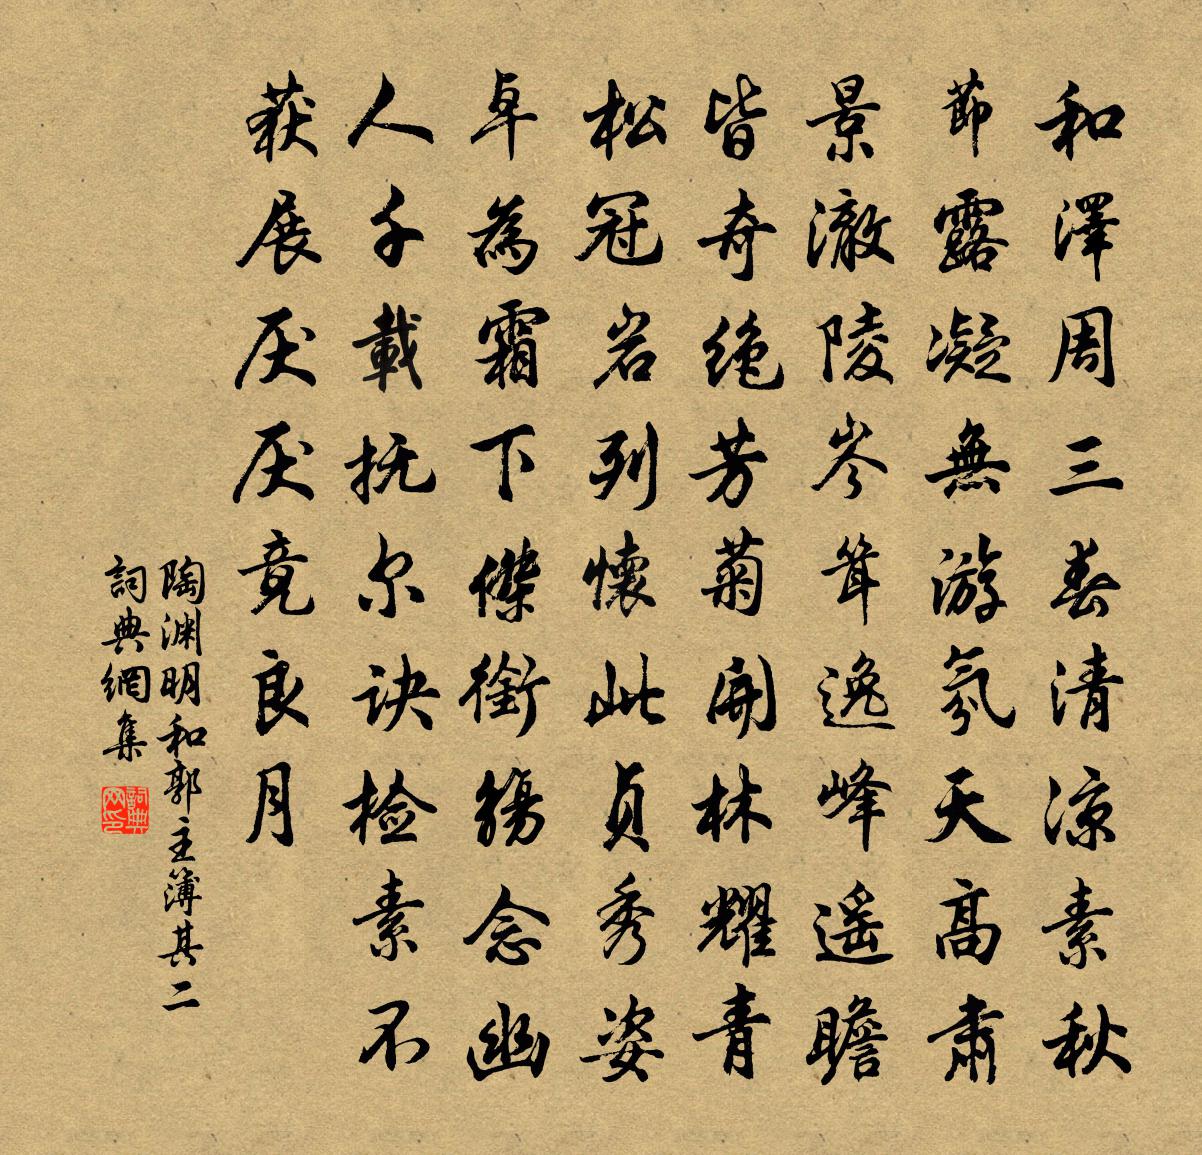 和澤周三春清涼素秋
節露凝無游氛天高肅
景澈陵岑聳逸峰遥瞻
皆奇絶芳菊開林耀青
松冠岩列懷此貞秀姿
卓為霜下傑銜觴念幽
人千載抚尔诀检素不
获展厌厌竟良月
陶渊明和郭主簿其二
詞典網集
詞典网印